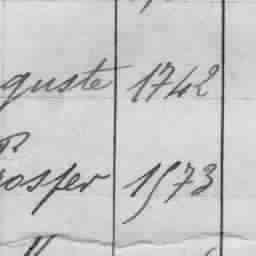 guste 1742
rosper 1573